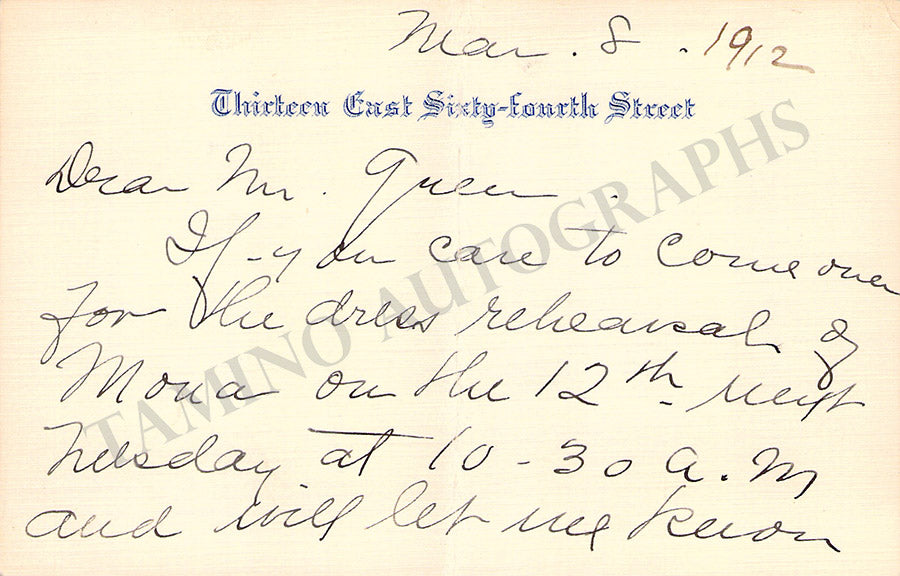 Mar. 8. 1912
Thirteen East Sixty-fourth Street
Dear Mr. Green.
If you care to come over
for the dress rehearsal of
Mona on the 12th next
Tuesday at 10-30 a.m
and will let me know
TAMINO AUTOGRAPHS